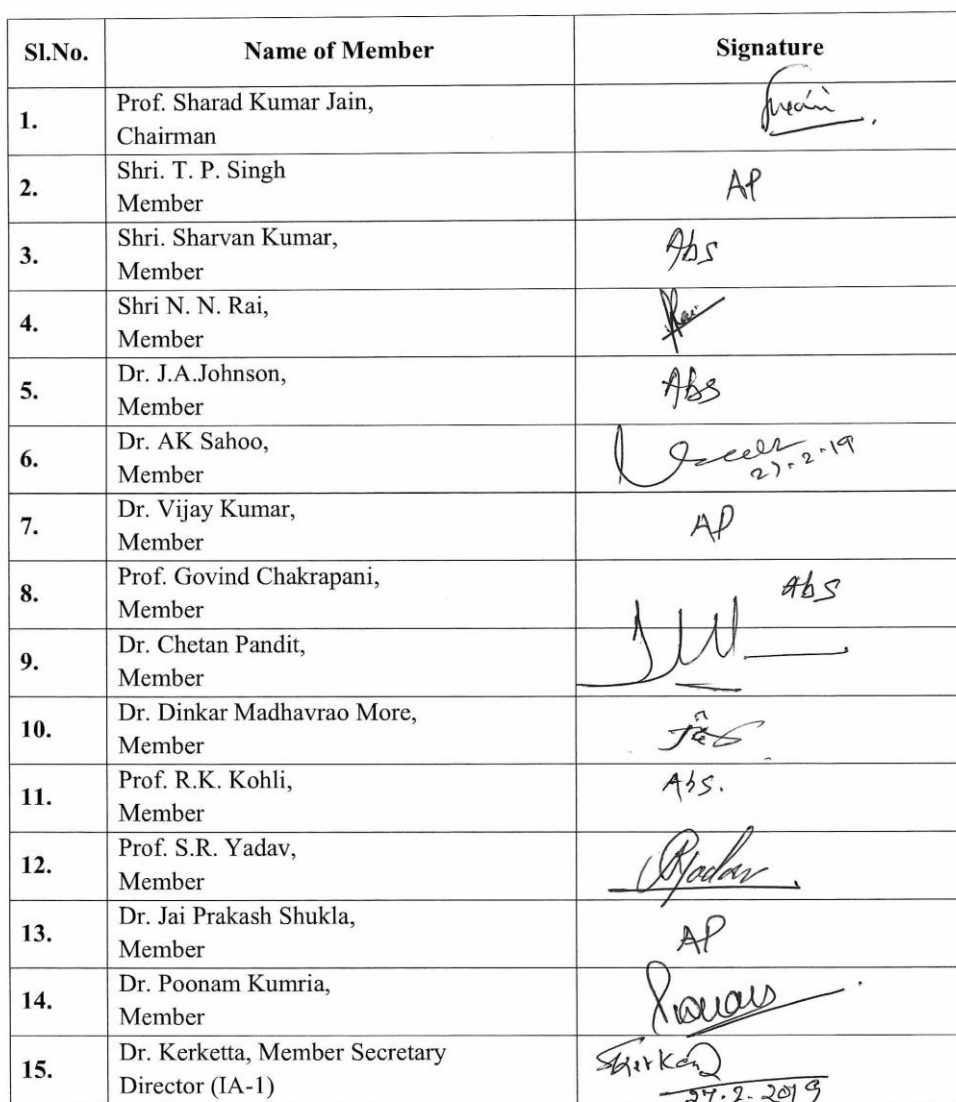 Sl.No. Name of Member Signature
1. Prof. Sharad Kumar Jain,
Chairman
2. Shri. T. P. Singh AP
Member
3. Shri. Sharvan Kumar, Abs
Member
4. Shri N. N. Rai,
Member
5. Dr. J.A.Johnson, Abs
Member
6. Dr. AK Sahoo,
Member
7. Dr. Vijay Kumar, AP
Member
8. Prof. Govind Chakrapani, Abs
Member
9. Dr. Chetan Pandit,
Member
10. Dr. Dinkar Madhavrao More,
Member
11. Prof. R.K. Kohli, Abs.
Member
12. Prof. S.R. Yadav, RYadav
Member
13. Dr. Jai Prakash Shukla, AP
Member
14. Dr. Poonam Kumria,
Member
15. Dr. Kerketta, Member Secretary
Director (IA-1) 27.2.2019